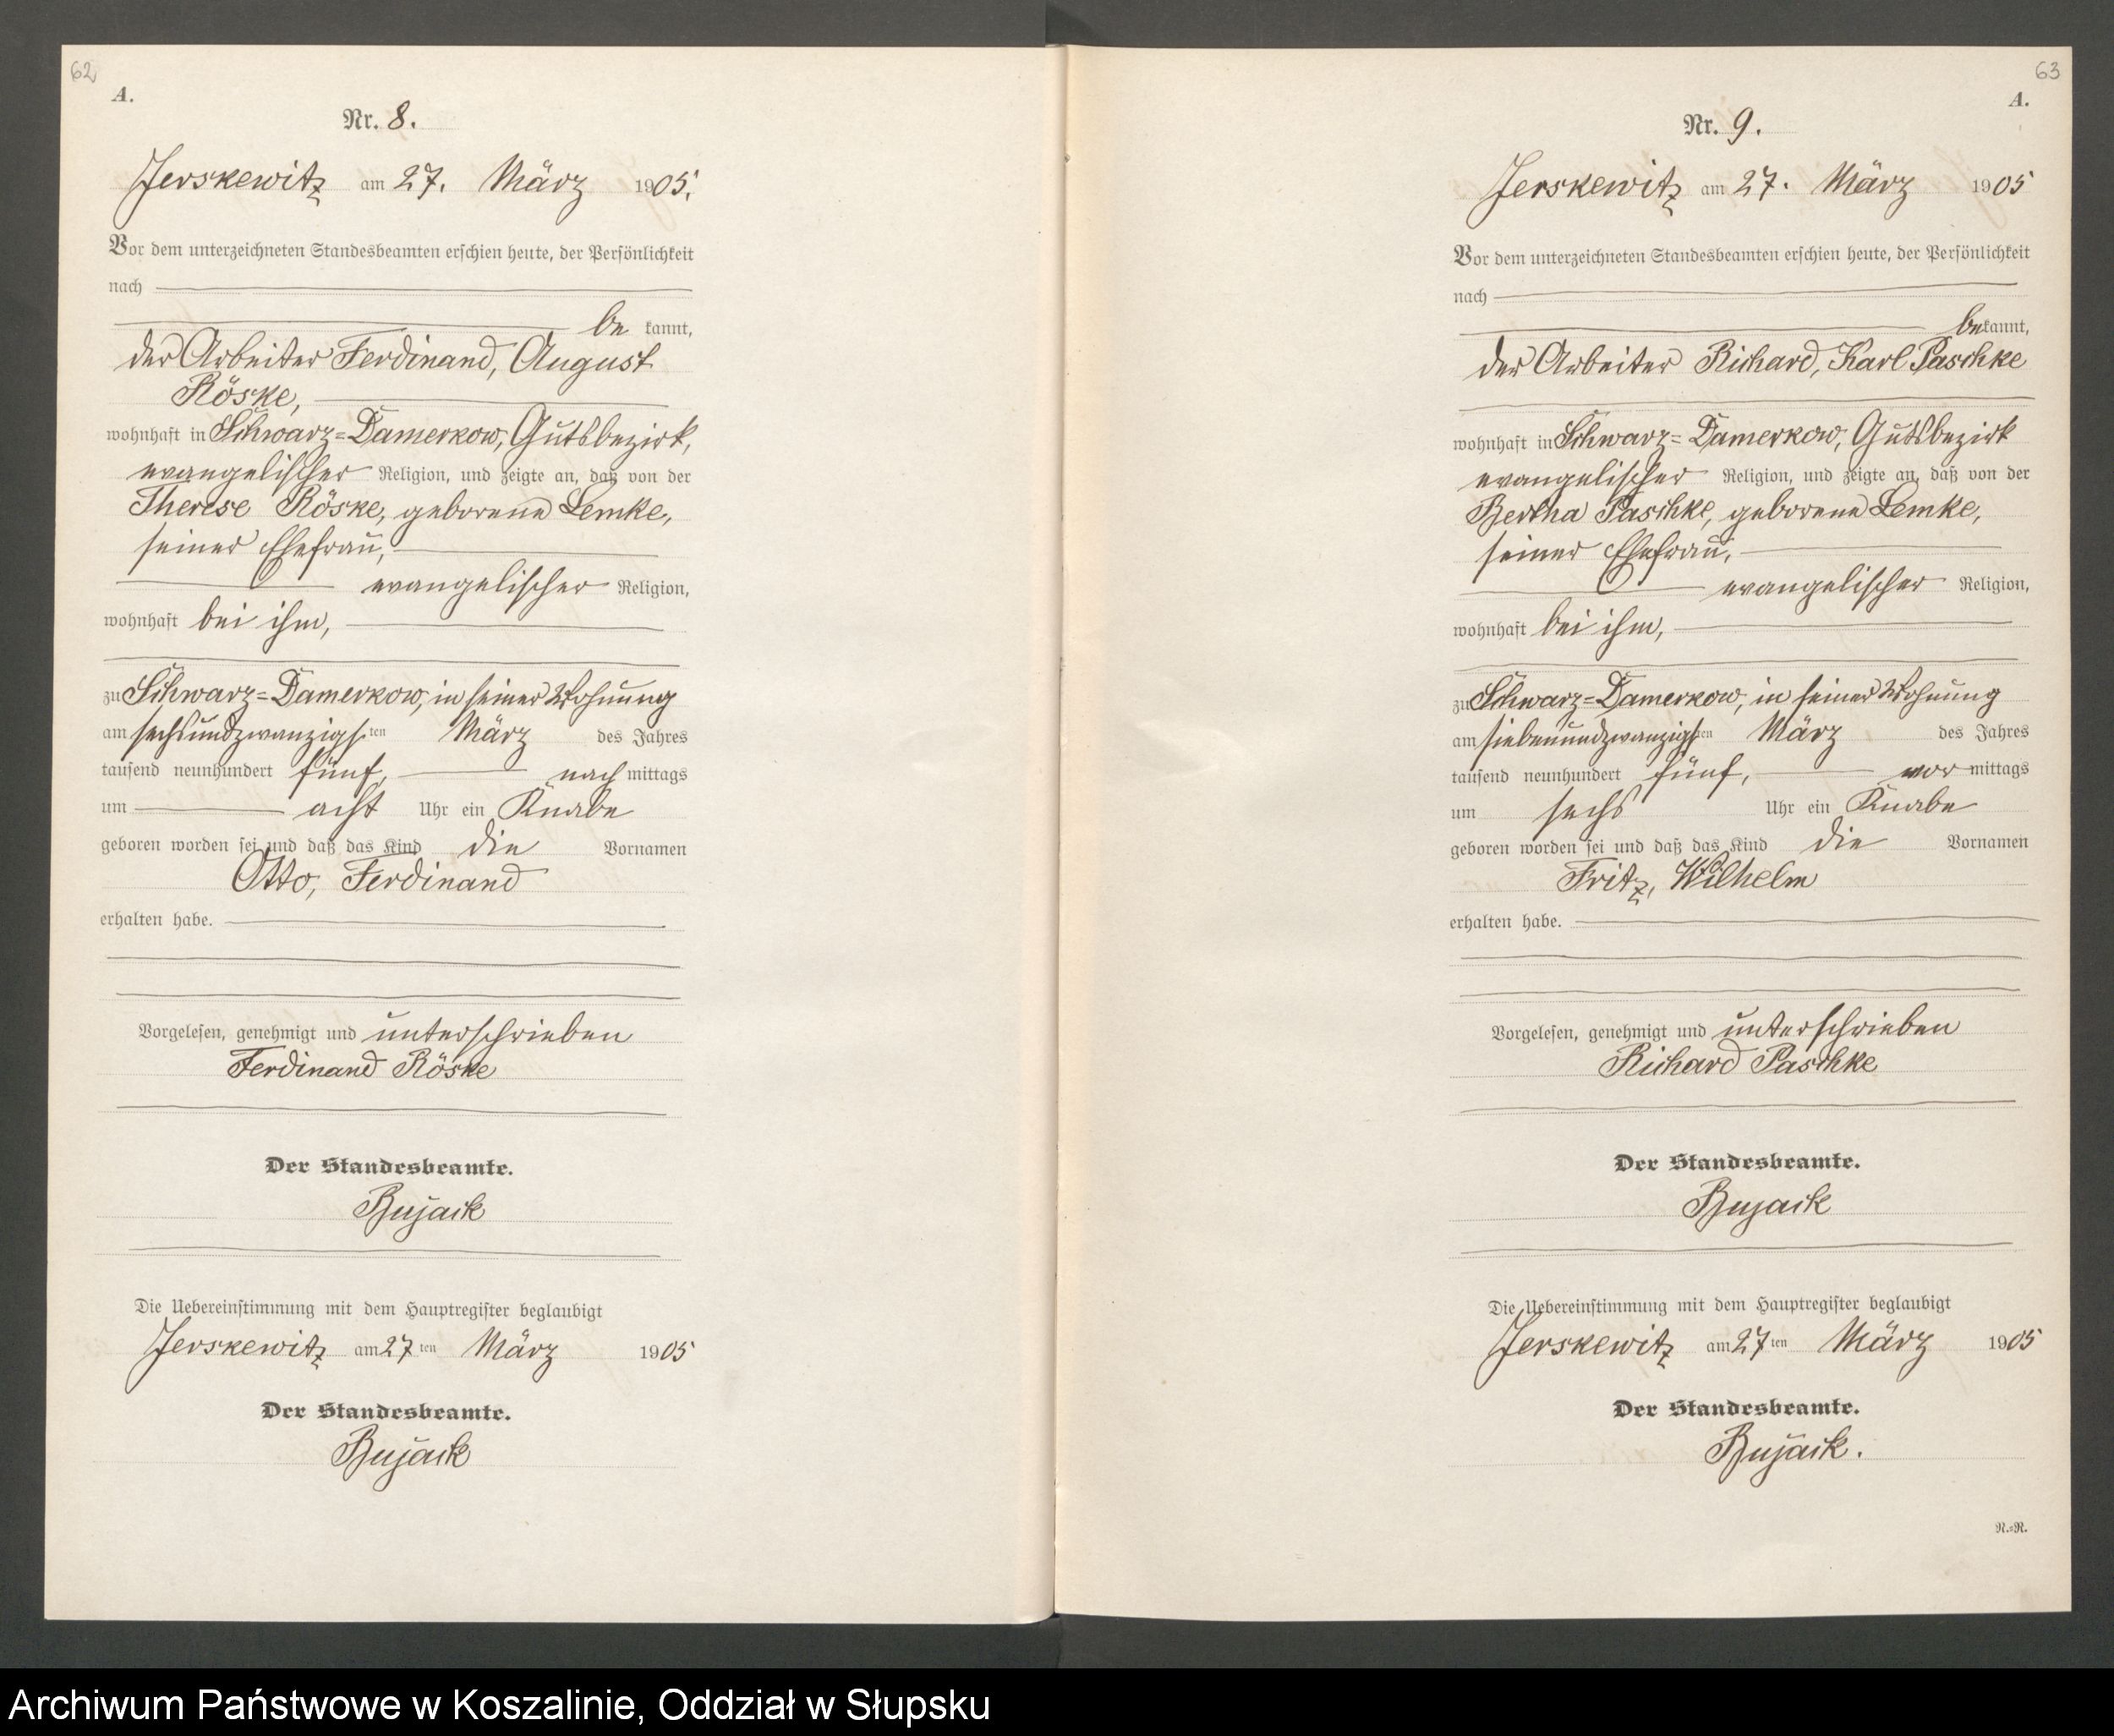 62
A.
Nr. 8.
Jerskewitz am 27. März 1905.
Vor dem unterzeichneten Standesbeamten erschien heute, der Persönlichkeit
nach
be kannt,
der Arbeiter Ferdinand, August
Röske,
wohnhaft in Schwarz=Damerkow, Gutsbezirk,
evangelischer Religion, und zeigte an, daß von der
Therese Röske, geborene Lemke,
seiner Ehefrau,
evangelischer Religion,
wohnhaft bei ihm,
zu Schwarz=Damerkow, in seiner Wohnung
am sechsundzwanzigsten März des Jahres
tausend neunhundert fünf, nach mittags
um acht Uhr ein Knabe
geboren worden sei und daß das Kind die Vornamen
Otto, Ferdinand
erhalten habe.
Vorgelesen, genehmigt und unterschrieben
Ferdinand Röske
Der Standesbeamte.
Bujack
Die Uebereinstimmung mit dem Hauptregister beglaubigt
Jerskewitz am 27 ten März 1905
Der Standesbeamte.
Bujack
63
A.
Nr. 9.
Jerskewitz am 27. März 1905
Vor dem unterzeichneten Standesbeamten erschien heute, der Persönlichkeit
nach
bekannt,
der Arbeiter Richard, Karl Paschke
wohnhaft in Schwarz=Damerkow, Gutsbezirk
evangelischer Religion, und zeigte an, daß von der
Bertha Paschke, geborene Lemke,
seiner Ehefrau,
evangelischer Religion,
wohnhaft bei ihm,
zu Schwarz=Damerkow, in seiner Wohnung
am siebenundzwanzigsten März des Jahres
tausend neunhundert fünf, vor mittags
um sechs Uhr ein Knabe
geboren worden sei und daß das Kind die Vornamen
Fritz, Wilhelm
erhalten habe.
Vorgelesen, genehmigt und unterschrieben
Richard Paschke
Der Standesbeamte.
Bujack
Die Uebereinstimmung mit dem Hauptregister beglaubigt
Jerskewitz am 27 ten März 1905
Der Standesbeamte.
Bujack.
N.=R.
Archiwum Państwowe w Koszalinie, Oddział w Słupsku